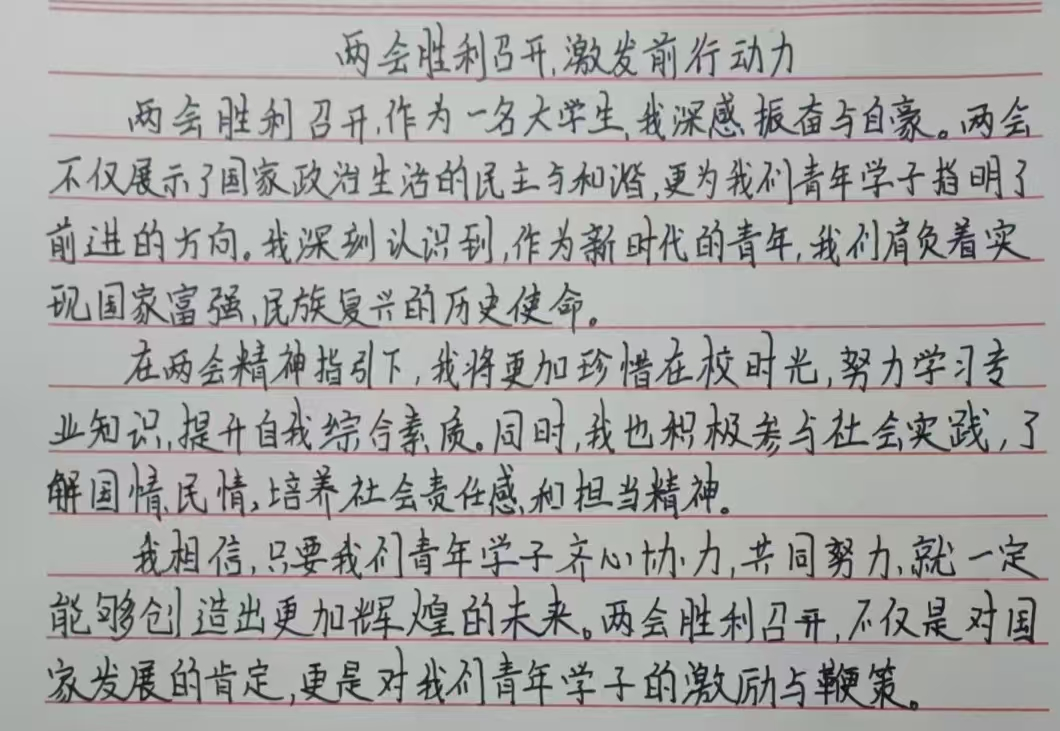 两会胜利召开,激发前行动力
两会胜利召开,作为一名大学生,我深感振奋与自豪。两会
不仅展示了国家政治生活的民主与和谐,更为我们青年学子指明了
前进的方向。我深刻认识到,作为新时代的青年,我们肩负着实
现国家富强、民族复兴的历史使命。
在两会精神指引下,我将更加珍惜在校时光,努力学习专
业知识,提升自我综合素质。同时,我也积极参与社会实践,了
解国情民情,培养社会责任感和担当精神。
我相信,只要我们青年学子齐心协力,共同努力,就一定
能够创造出更加辉煌的未来。两会胜利召开,不仅是对国
家发展的肯定,更是对我们青年学子的激励与鞭策。